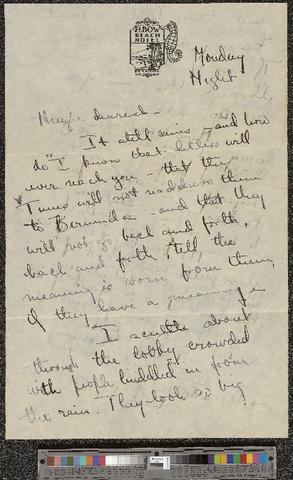 ELBOW
BEACH
HOTEL
Monday
Night
dearest -
It still rains - and how
do I know that letters will
ever reach you - that the
Times will not readdress them
to Bermuda - and that they
will not go back and forth,
back and forth, till the
meaning is worn from them,
if they have a meaning -
I scuttle about
through the lobby crowded
with people huddled in from
the rain. They look so big